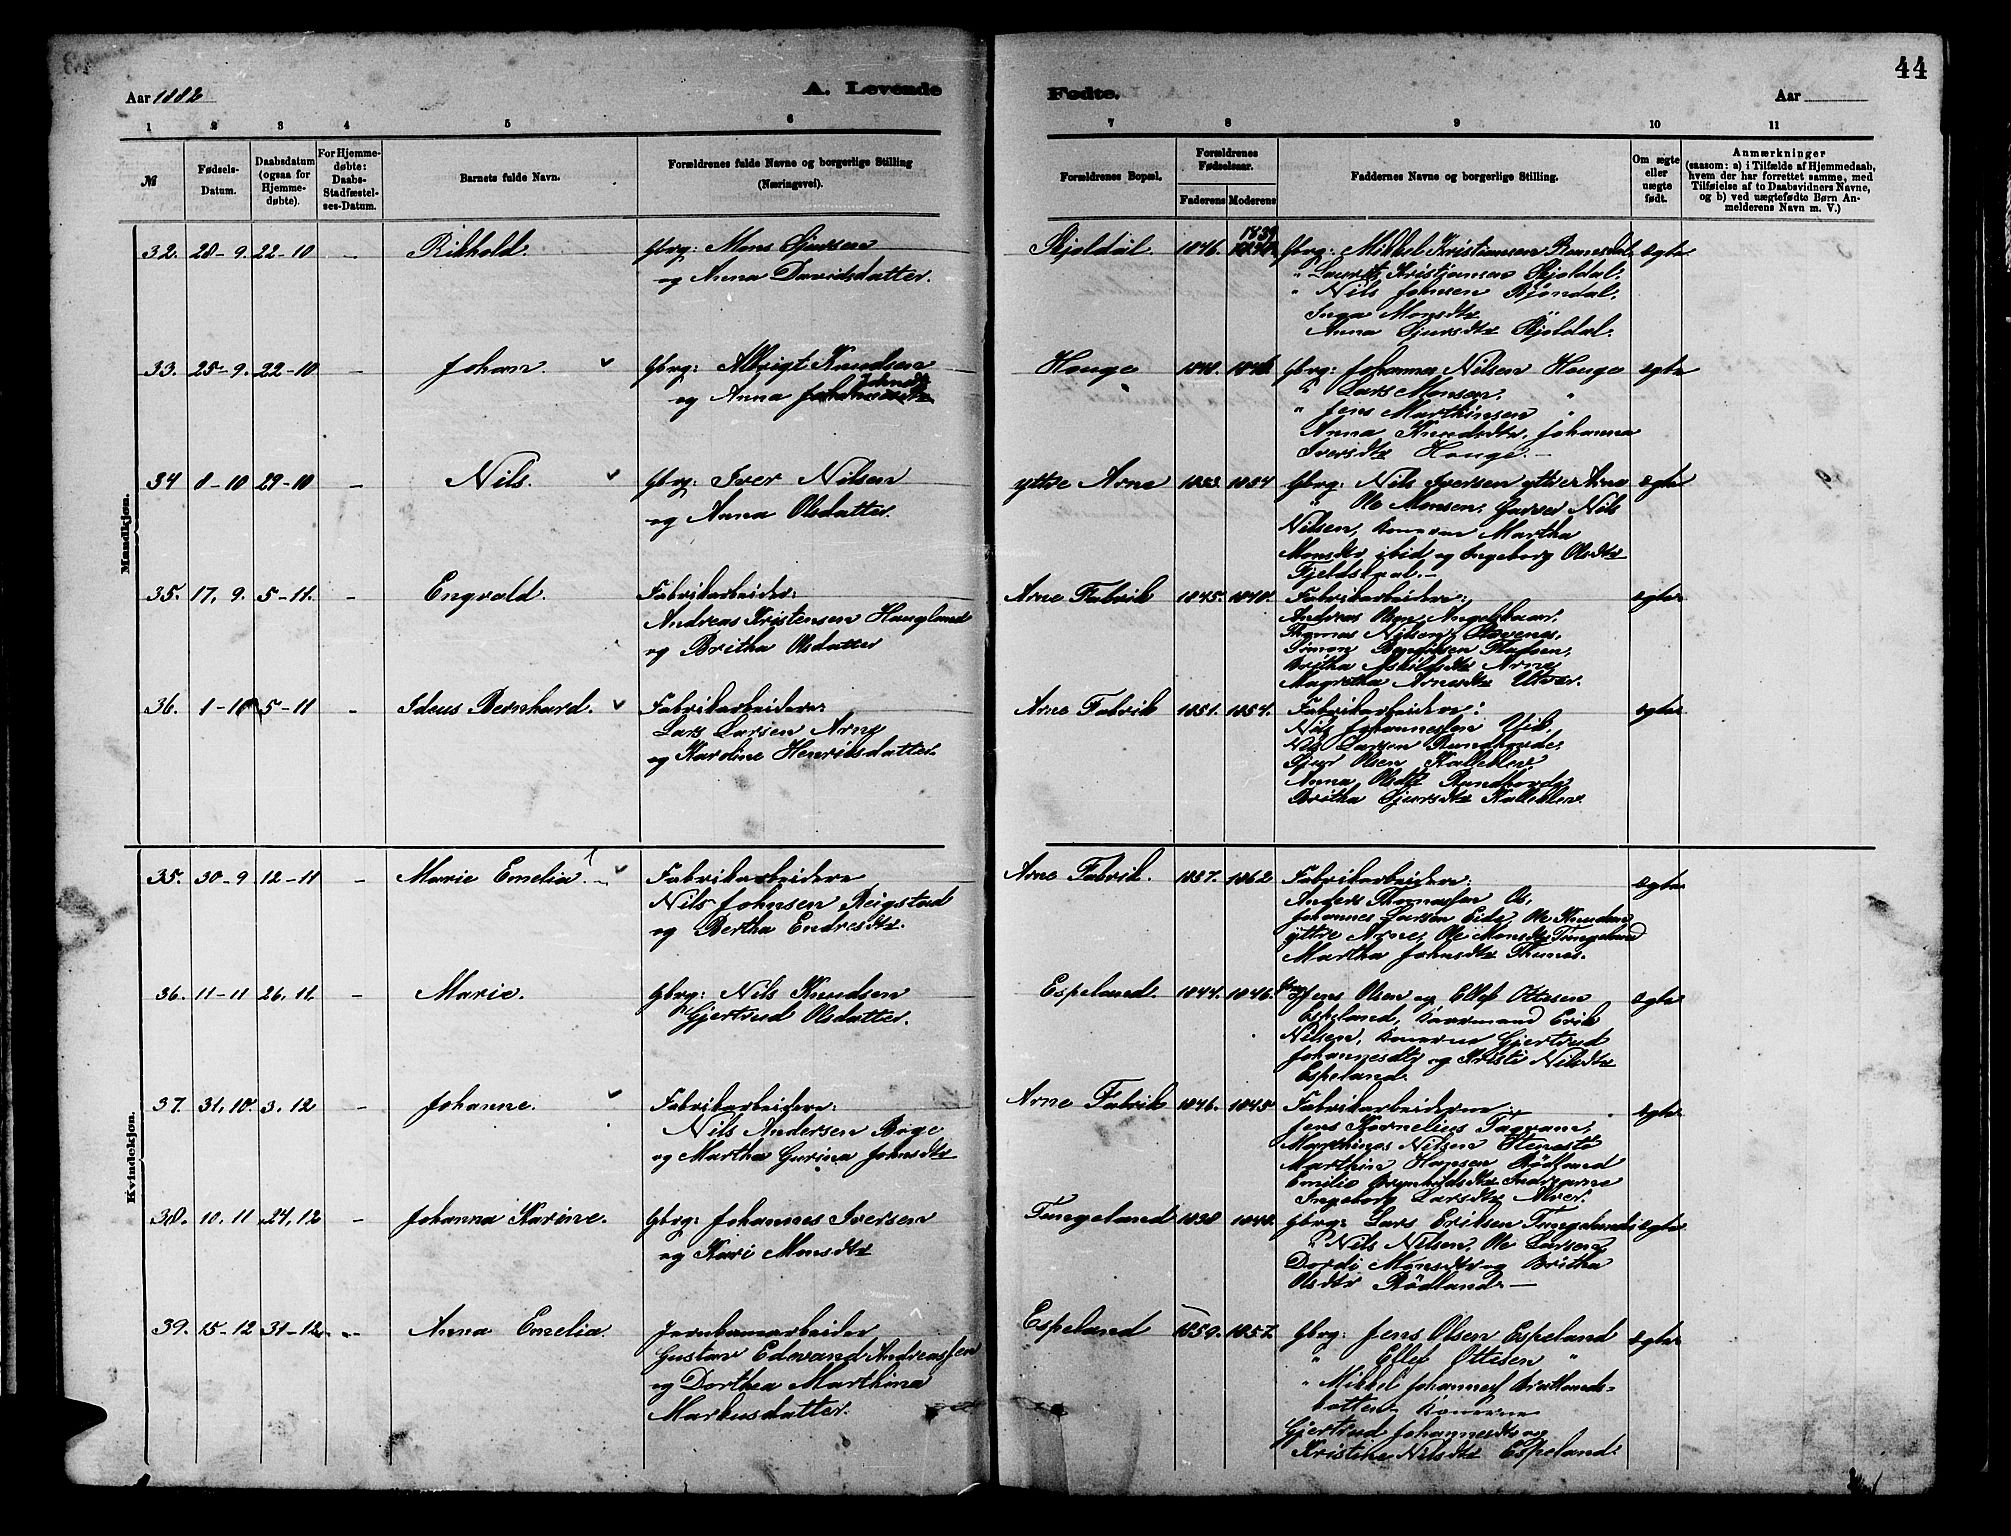 44
Aar 1882
A. Levende
Fødte.
Aar
1 2 3 4 5 6 7 8 9 10 11
№
Fødsels-
Datum.
Daabsdatum
(ogsaa for
Hjemme-
døbte).
For Hjemme-
døbte:
Daabs-
Stadfæstel-
ses-Datum.
Barnets fulde Navn.
Forældrenes fulde Navne og borgerlige Stilling
(Næringsvei).
Forældrenes Bopæl.
Forældrenes
Fødselsaar.
Faderens Moderens
Faddernes Navne og borgerlige Stilling.
Om ægte
eller
uægte
født.
Anmærkninger
(saasom: a) i Tilfælde af Hjemmedaab,
hvem der har forrettet samme, med
Tilføielse af to Daabsvidners Navne,
og b) ved uægtefødte Børn An-
melderens Navn m. V.)
Mandkjøn.
32. 28-9. 22-10 - Rikhold. Gbrg: Mons Sjursen
og Anna Davidsdatter.
Skjoldal 1846. 1839
Gbrg: Mikkel Kristiansen Romesdal, ægte
" Laurits Kristjansen Skjoldal.
" Nils Johnsen Bjöndal.
Inga Monsdtr
Anna Sjursdtr Skjoldal.
33. 25-9. 22-10 - Johan. Gbrg: Albrigt Knudsen
og Anna
Houge 1848. 1846 Gbrg: Johannes Nilsen Houge ægte
" Lars Monsen, "
" Jens Marthinsen "
Anna Knudsdtr, Johanna
Iversdtr Houge.-
34 8-10 29-10 - Nils. Gbrg: Iver Nilsen
og Anna Olsdatter.
yttre Arne 1853. 1854 Gbrg: Nils Iversen yttre Arne ægte
" Ole Monsen, Gutten Nils
Nilsen, Konerne Martha
Monsdtr ibid og Ingeborg Olsdtr
Fjeldskaal.-
35. 17, 9. 5-11. - Engvald. Fabrikarbeider:
Andreas Kristensen Haugland
og Britha Olsdatter
Arne Fabrik 1845. 1848. Fabrikarbeidere: ægte
Andreas Olsen
Thomas Nilsen
Simon
Britha Arne,
Magretha Arnesdtr Utvær.
36. 1-10 5-11 - Ideus Bernhard. Fabrikarbeidere
Lars Larsen Arne
og Karoline Henriksdatter.
Arne Fabrik 1851. 1854. Fabrikarbeidere: ægte
Nils Johannessen Vik,
Nils Larsen Rundhovde,
Sjur Olsen Kalleklev
Anna Olsdtr Rundhovde
Britha Sjursdtr Kalleklev.
Kvindekjøn.
35. 30-9 12-11 - Marie Emelia. Fabrikarbeidere
Nils Johnsen Reigstad
og Bertha Endresdtr.
Arne Fabrik. 1857. 1862 Fabrikarbeidere: ægte
Anders Thomassen Os,
Johannes Larsen Eide, Ole Knudsen
yttre Arne, Ole Monsdtr Tungeland
Martha Johnsdtr Thunes.
36. 11-11 26, 11. - Marie. Gbrg: Nils Knudsen
Gjertrud Olsdatter.
Espeland. 1844. 1846. Gbrg: Jens Olsen og Ellef Ottesen ægte
Espeland, Kaarmand Erik
Nilsen, Konerne Gjertrud
Johannesdtr og Kristi Nilsdtr
Espeland.
37. 31, 10. 3, 12 - Johanne. Fabrikarbeidere:
Nils Andersen Boge
og Martha Gurina Johnsdtr
Arne Fabrik 1846. 1845 Fabrikarbeiderne ægte
Jens Kornelius
Marthinus Nilsen
Marthin Hansen Rödland
Emilie Brynhildsdtr Indrearne
Ingeborg Larsdtr Alver.
38. 10. 11 24, 12 - Johanna Karine. Gbrg: Johannes Iversen
og Kari Monsdtr
Tungeland 1838 1848. Gbrg: Lars Eriksen Tungeland, ægte
" Nils Nilsen, Ole Larsen,
Dordi Monsdtr og Britha
Olsdtr Rödland.-
39. 15-12 31-12. - Anna Emelia. Jernbanearbeider
Gustav Edevand Andreassen
og Dorthea Marthina
Markusdatter.
Espeland 1859. 1857. Gbrg: Jens Olsen Espeland ægte
" Ellef Ottesen "
" Mikkel Johannes Bratlands-
botten Konerne
Gjertrud Johannesdtr og
Kristine Nilsdtr Espeland.